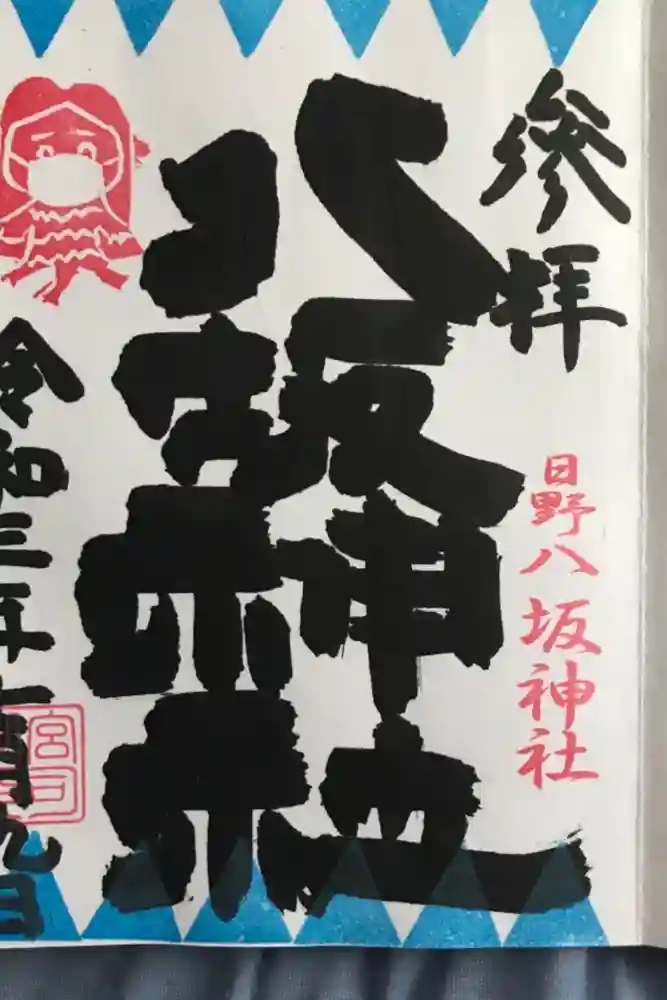 参拝
日野八坂神社
八坂神社
令和三年一月九日
宮司